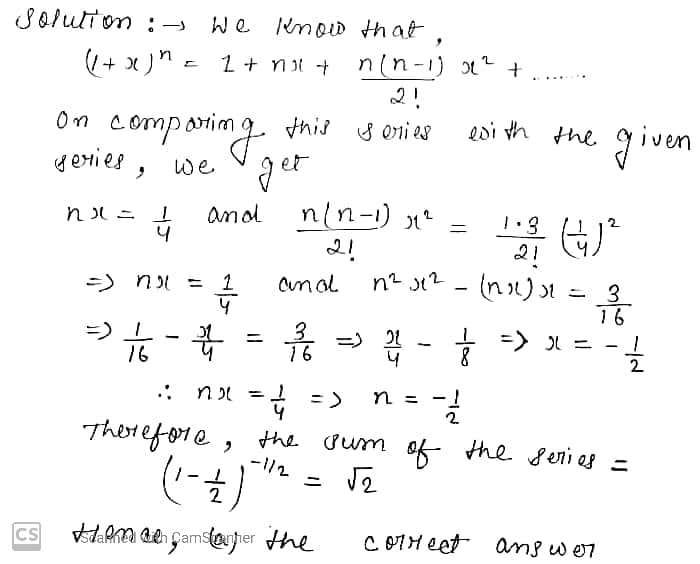 Solution :→ We Know that,
(1+x)ⁿ = 1 + nx + n(n-1)/2! x² + ........
On comparing this series with the given
series, we get
nx = 1/4 and n(n-1)/2! x² = 1·3/2! (1/4)²
=> nx = 1/4 and n²x² - (nx)x = 3/16
=> 1/16 - x/4 = 3/16 => x/4 - 1/8 => x = -1/2
∴ nx = 1/4 => n = -1/2
Therefore, the sum of the series =
(1 - 1/2)^(-1/2) = √2
Hence, (a) the correct answer
CS Scanned with CamScanner